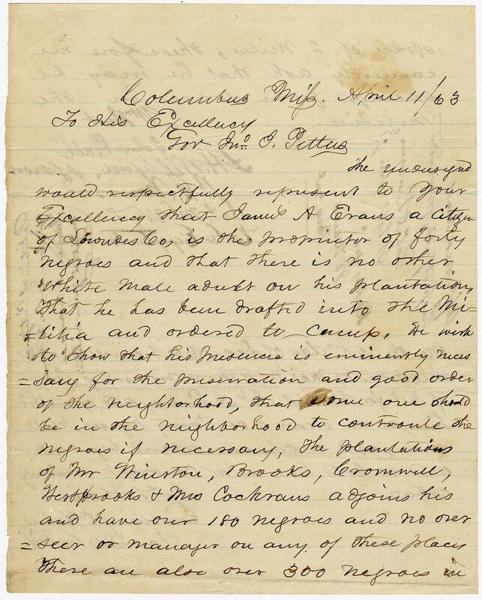 Columbus Miss. April 11/63
To His Excellency
Gov Jno. J. Pettus
The undersignd
would respectfully represent to Your
Excellency that James A Evans a Citizen
of Lowndes Co, is the proprietor of forty
negroes and that there is no other
White Male adult on his plantation
that he has been drafted into the Mi-
=litia and ordered to camp. We wish
to show that his Presence is eminently neces
=sary for the preservation and good order
of the neighborhood, that some one should
be in the neighborhood to controule the
negroes if necessary, The plantations
of Mr Winston, Brooks, Cromwell,
Westbrooks & Mrs Cockrans adjoins his
and have over 180 negroes and no over
=seer or manager on any of these places
There are also over 300 negroes in